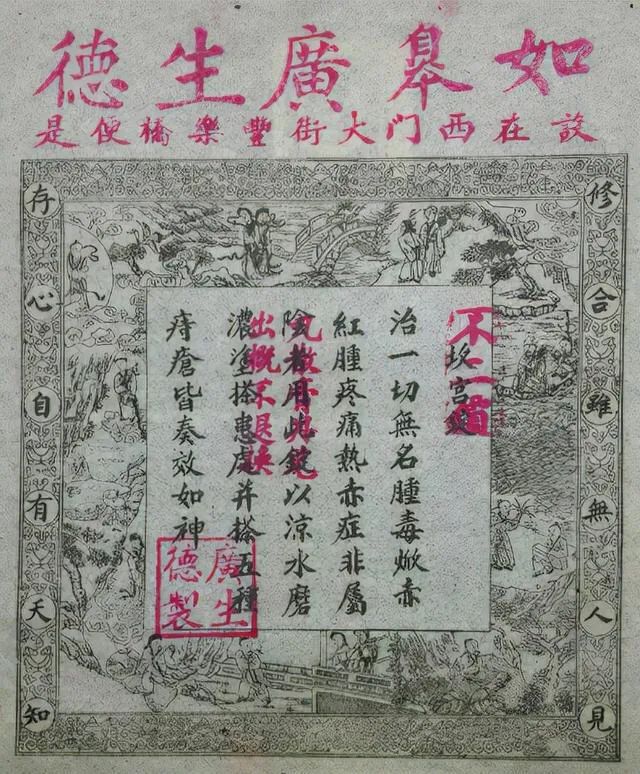 如皋廣生德
設在西門大街豐樂橋便是
修合雖無人見
不二價
坎宮錠
治一切無名腫毒焮赤
紅腫疼痛熱赤症非屬
陰者用此錠以涼水磨
濃塗搽患處并搽五種
痔瘡皆奏效如神
丸散膏丹
出概不退換
廣生德製
存心自有天知